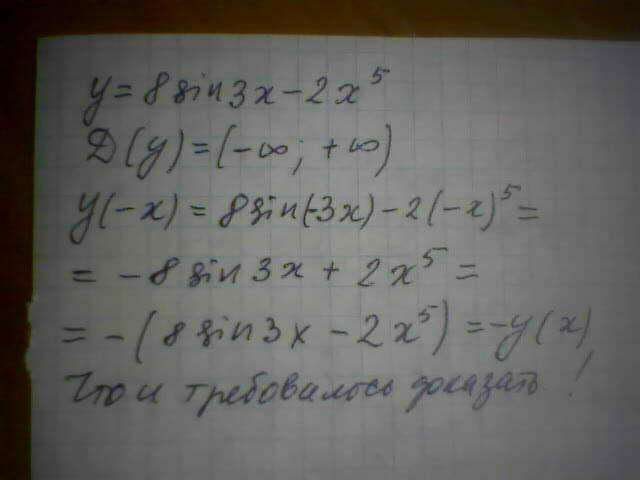 y = 8 sin 3x - 2x⁵
D(y) = (-∞; +∞)
y(-x) = 8 sin(-3x) - 2(-x)⁵ =
= -8 sin 3x + 2x⁵ =
= -(8 sin 3x - 2x⁵) = -y(x)
Что и требовалось доказать!